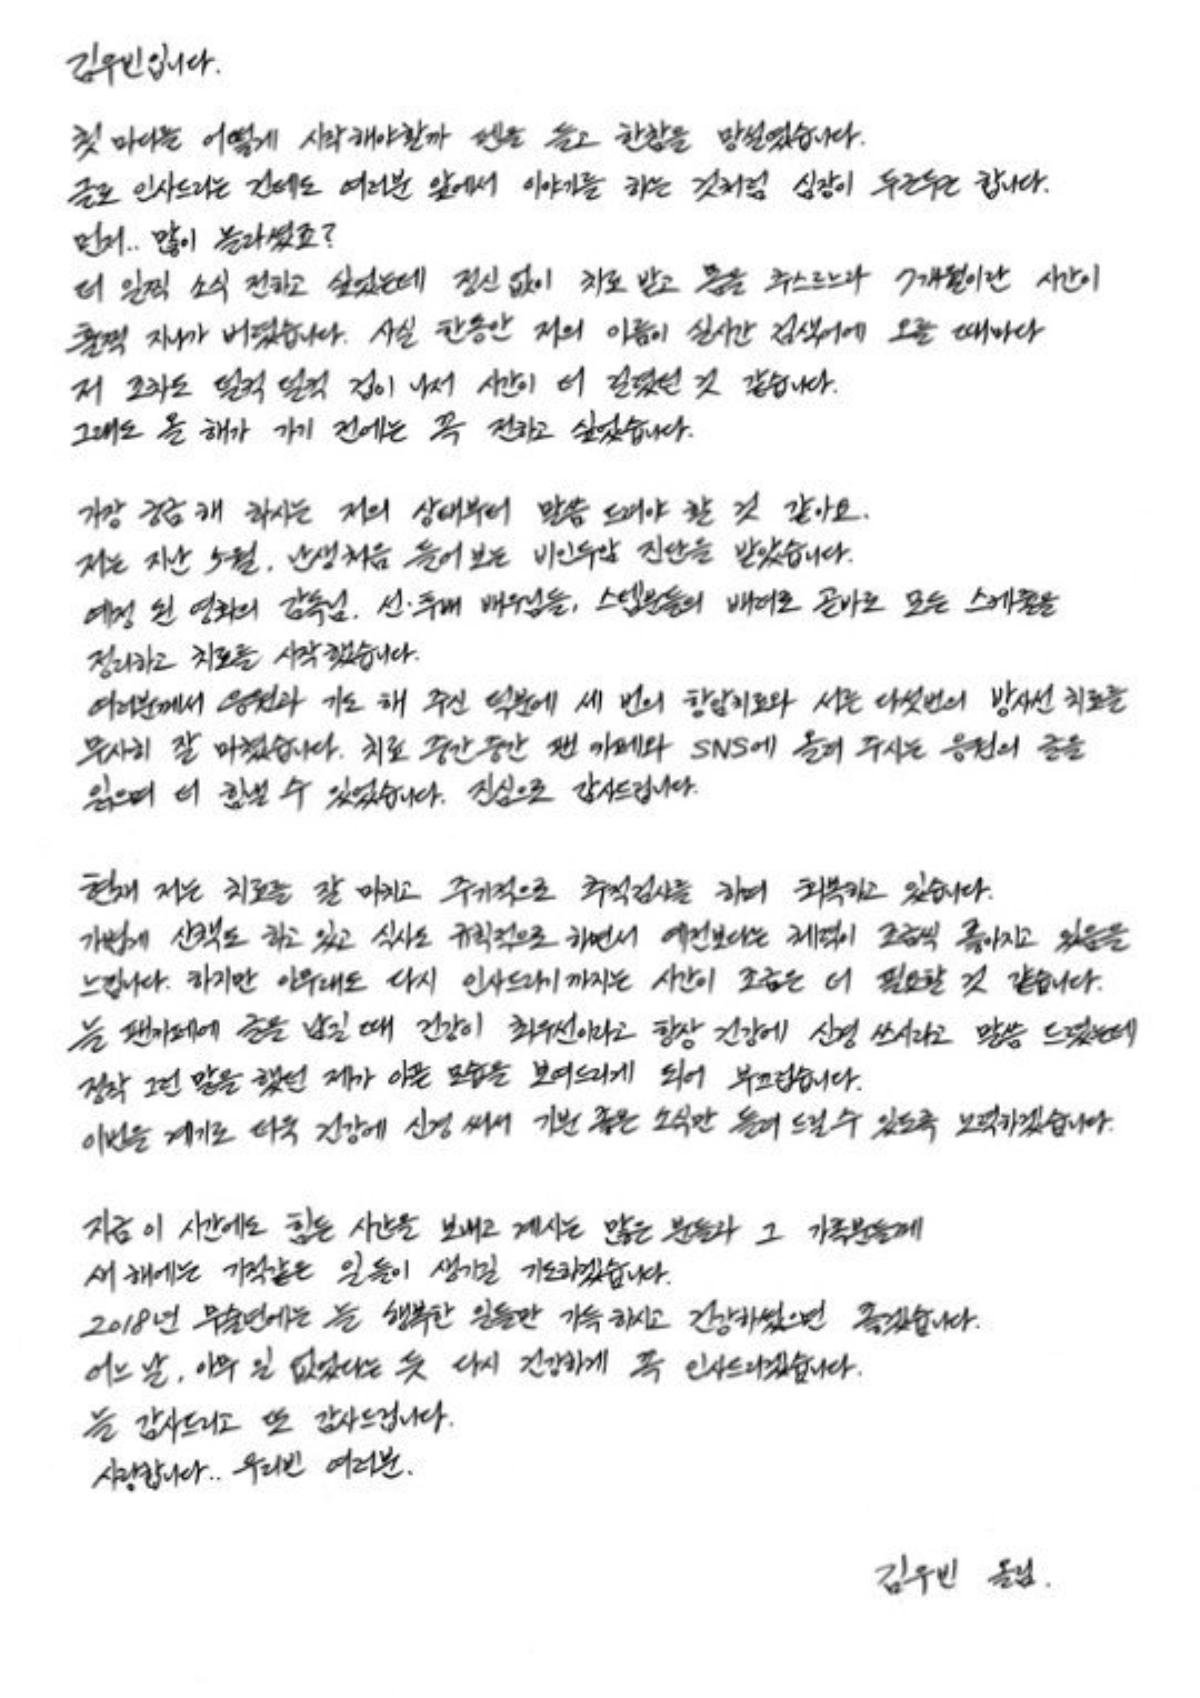 김우빈입니다.
첫 마디는 어떻게 시작해야할까 펜을 들고 한참을 망설였습니다.
글로 인사드리는 건데도 여러분 앞에서 이야기를 하는 것처럼 심장이 두근두근 합니다.
먼저.. 많이 놀라셨죠?
더 일찍 소식 전하고 싶었는데 정신 없이 치료 받고 몸을 추스르느라 7개월이란 시간이
훌쩍 지나가 버렸습니다. 사실 한동안 저의 이름이 실시간 검색어에 오를 때마다
저 조차도 덜컥 덜컥 겁이 나서 시간이 더 걸렸던 것 같습니다.
그래도 올 해가 가기 전에는 꼭 전하고 싶었습니다.
가장 궁금해 하시는 저의 상태부터 말씀 드려야 할 것 같아요.
저는 지난 5월, 난생처음 들어 보는 비인두암 진단을 받았습니다.
예정 된 영화의 감독님, 선·후배 배우님들, 스텝분들의 배려로 곧바로 모든 스케줄을
정리하고 치료를 시작했습니다.
여러분께서 응원과 기도 해 주신 덕분에 세 번의 항암치료와 서른 다섯번의 방사선 치료를
무사히 잘 마쳤습니다. 치료 중간 중간 팬 카페와 SNS에 올려 주시는 응원의 글을
읽으며 더 힘낼 수 있었습니다. 진심으로 감사드립니다.
현재 저는 치료를 잘 마치고 주기적으로 추적검사를 하며 회복하고 있습니다.
가볍게 산책도 하고 있고 식사도 규칙적으로 하면서 예전보다는 체력이 조금씩 좋아지고 있음을
느낍니다. 하지만 아무래도 다시 인사드리기까지는 시간이 조금은 더 필요할 것 같습니다.
늘 팬카페에 글을 남길 때 건강이 최우선이라고 항상 건강에 신경 쓰시라고 말씀 드렸는데
정작 그런 말을 했던 제가 아픈 모습을 보여드리게 되어 부끄럽습니다.
이번을 계기로 더욱 건강에 신경 써서 기분 좋은 소식만 들려 드릴 수 있도록 노력하겠습니다.
지금 이 시간에도 힘든 시간을 보내고 계시는 많은 분들과 그 가족분들께
새 해에는 기적같은 일들이 생기길 기도하겠습니다.
2018년 무술년에는 늘 행복한 일들만 가득 하시고 건강하셨으면 좋겠습니다.
어느 날, 아무 일 없었다는 듯 다시 건강하게 꼭 인사드리겠습니다.
늘 감사드리고 또 감사드립니다.
사랑합니다.. 우리빈 여러분.
김우빈 올림.